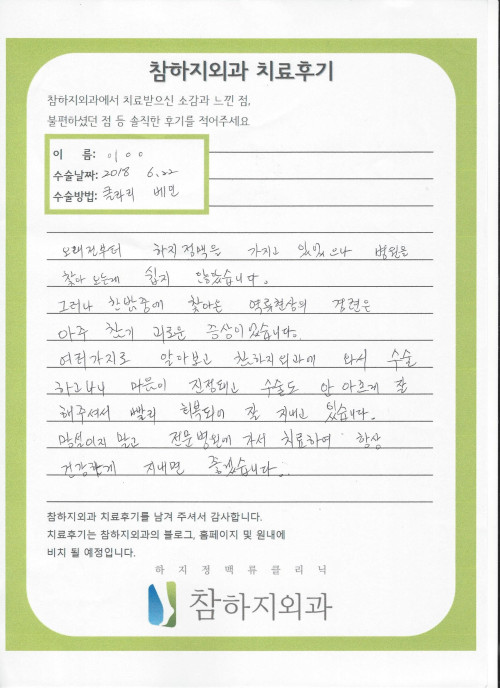 참하지외과 치료후기
참하지외과에서 치료받으신 소감과 느낀 점,
불편하셨던 점 등 솔직한 후기를 적어주세요
이 름: 이ㅇㅇ
수술날짜: 2018 6.22
수술방법: 클라리 베인
오래전부터 하지정맥을 가지고 있었으나 병원을
찾아 오는게 쉽지 않았습니다.
그러나 한밤중에 찾아온 역류현상의 경련은
아주 참기 괴로운 증상이었습니다.
여러가지로 알아보고 참하지외과에 와서 수술
하고나니 마음이 진정되고 수술도 안 아프게 잘
해주셔서 빨리 회복되어 잘 지내고 있습니다.
망설이지 말고 전문병원에 가서 치료하여 항상
건강하게 지내면 좋겠습니다.
참하지외과 치료후기를 남겨 주셔서 감사합니다.
치료후기는 참하지외과의 블로그, 홈페이지 및 원내에
비치 될 예정입니다.
하지정맥류클리닉
참하지외과